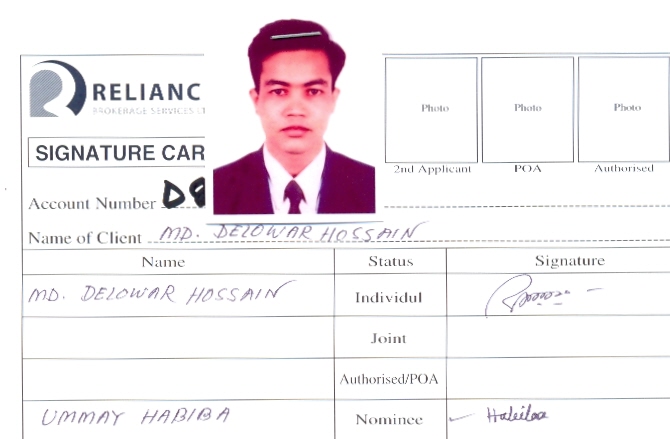 RELIANC
BROKERAGE SERVICES LT
SIGNATURE CAR
Photo Photo Photo
2nd Applicant POA Authorised
Account Number D9
Name of Client MD. DELOWAR HOSSAIN
Name Status Signature
MD. DELOWAR HOSSAIN Individul
Joint
Authorised/POA
UMMAY HABIBA Nominee Habiba